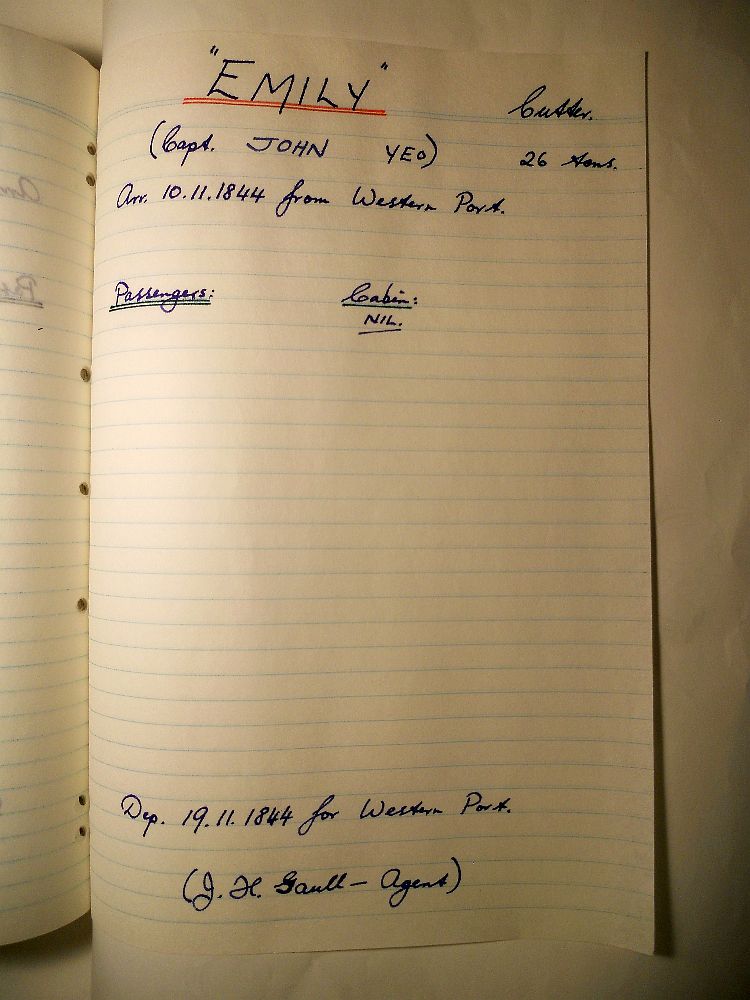 "EMILY"
Cutter.
(Capt. JOHN YEO)
26 tons.
Arr. 10.11.1844 from Western Port.
Passengers:
Cabin:
NIL.
Dep. 19.11.1844 for Western Port.
(J. H. Gaull - Agent)